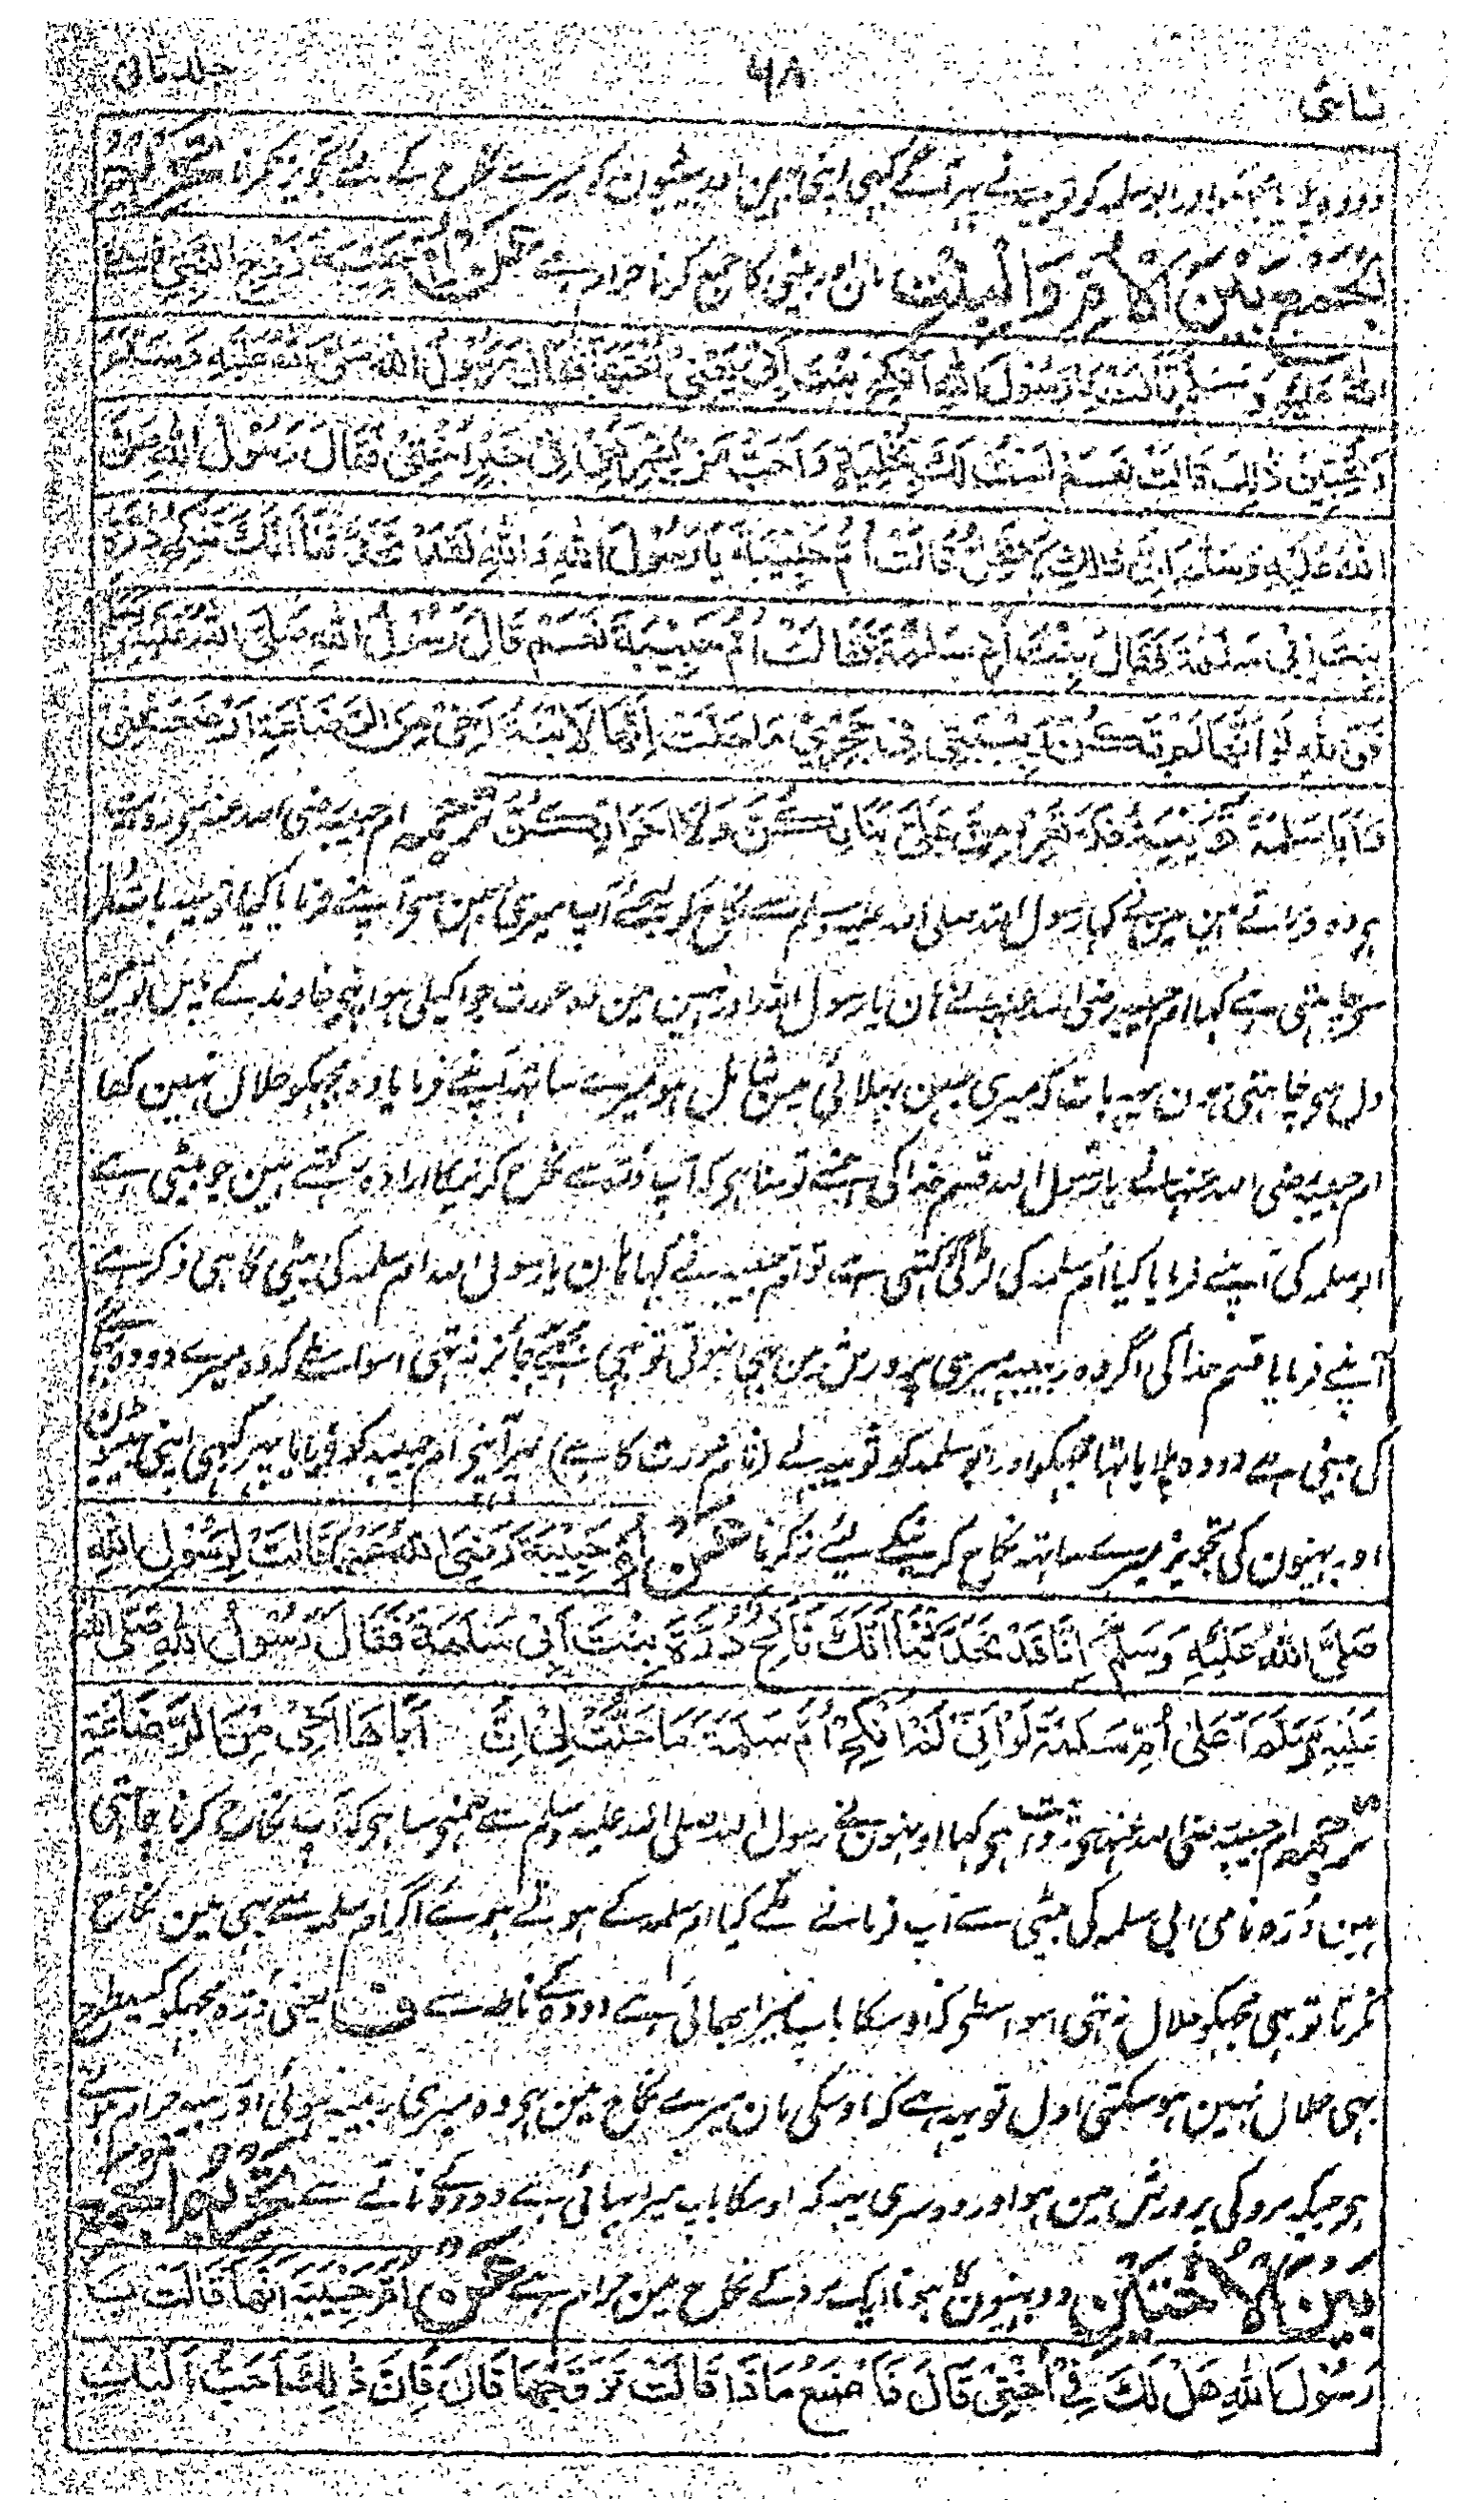 نسائی ۶۸ جلد ثانی
دودہ پلایا مجہکو اور ابو سلمہ کو ثویبہ نے پہر آگے کبہی اپنی بہنین اور بیٹیون کو میرے نکاح کے لئے تجویز نکرنا تَحْرِيْمُ
الْجَمْعِ بَيْنَ الْاُمِّ وَالْبِنْتِ مان اور بیٹی کا جمع کرنا حرام ہے عَنْ اُمِّ حَبِيْبَةَ زَوْجِ النَّبِيِّ صَلَّى
اللهُ عَلَيْهِ وَسَلَّمَ قَالَتْ يَا رَسُوْلَ اللهِ اَنْكِحْ بِنْتَ اَبِيْ يَعْنِيْ اُخْتَهَا فَقَالَ رَسُوْلُ اللهِ صَلَّى اللهُ عَلَيْهِ وَسَلَّمَ
وَتُحِبِّيْنَ ذٰلِكَ قَالَتْ نَعَمْ لَسْتُ لَكَ بِمُخْلِيَةٍ وَاَحَبُّ مَنْ يَّشْرَكُنِيْ فِيْ خَيْرٍ اُخْتِيْ فَقَالَ رَسُوْلُ اللهِ صَلَّى
اللهُ عَلَيْهِ وَسَلَّمَ اِنَّ ذٰلِكِ لَا يَحِلُّ قَالَتْ اُمُّ حَبِيْبَةَ يَا رَسُوْلَ اللهِ وَاللهِ لَقَدْ تَحَدَّثْنَا اَنَّكَ تَنْكِحُ دُرَّةَ
بِنْتَ اَبِيْ سَلَمَةَ فَقَالَ بِنْتُ اُمِّ سَلَمَةَ فَقَالَتْ اُمُّ حَبِيْبَةَ نَعَمْ قَالَ رَسُوْلُ اللهِ صَلَّى اللهُ عَلَيْهِ وَسَلَّمَ
فَوَاللهِ لَوْ اَنَّهَا لَمْ تَكُنْ رَبِيْبَتِيْ فِيْ حَجْرِيْ مَا حَلَّتْ اِنَّهَا لَابْنَةُ اَخِيْ مِنَ الرَّضَاعَةِ اَرْضَعَتْنِيْ
وَاَبَا سَلَمَةَ ثُوَيْبَةُ فَلَا تَعْرِضْنَ عَلَيَّ بَنَاتِكُنَّ وَلَا اَخَوَاتِكُنَّ ترجمہ ام حبیبہ رضی اللہ عنہا سے روایت
ہے وہ فرماتے ہین مین نے کہا رسول اللہ صلی اللہ علیہ وسلم سے نکاح کر لیجئے آپ میری بہن سے آپنے فرمایا کیا تو یہہ بات دل
سے چاہتی ہے کہا ام حبیبہ رضی اللہ عنہا نے ہان یا رسول اللہ اور نہین مین وہ عورت جو اکیلی ہو اپنے خاوند کے پاس اور مین
دل سے چاہتی ہون یہہ بات کہ میری بہن بہلائی مین شامل ہو میرے ساتہہ آپنے فرمایا وہ مجہکو حلال نہین کہا
ام حبیبہ رضی اللہ عنہا نے یا رسول اللہ قسم خدا کی ہمنے تو سنا ہے کہ آپ درہ سے نکاح کرنیکا ارادہ رکہتے ہین جو بیٹی ہے
ابو سلمہ کی آپنے فرمایا کیا ام سلمہ کی لڑکی کہتی ہے تو ام حبیبہ نے کہا ہان یا رسول اللہ ام سلمہ کی بیٹی کا ہی ذکر ہے
آپنے فرمایا قسم خدا کی اگر وہ ربیبہ میری پرورش مین بہی نہوتی تو بہی مجہے جائز نہ تہی اسواسطے کہ وہ میرے دودہ بہائی
کی بیٹی ہے دودہ پلایا تہا مجہکو اور ابو سلمہ کو ثویبہ نے (نام عورت کا ہے) پہر آپنے ام حبیبہ کو فرمایا پہر کبہی اپنی بیٹیون
اور بہنون کی تجویز میرے ساتہہ نکاح کرنیکے لیئے نکرنا عَنْ اُمِّ حَبِيْبَةَ رَضِيَ اللهُ عَنْهَا قَالَتْ لِرَسُوْلِ اللهِ
صَلَّى اللهُ عَلَيْهِ وَسَلَّمَ اِنَّا قَدْ تَحَدَّثْنَا اَنَّكَ نَاكِحٌ دُرَّةَ بِنْتَ اَبِيْ سَلَمَةَ فَقَالَ رَسُوْلُ اللهِ صَلَّى اللهُ
عَلَيْهِ وَسَلَّمَ اَعَلٰى اُمِّ سَلَمَةَ لَوْ اَنِّيْ لَمْ اَنْكِحْ اُمَّ سَلَمَةَ مَا حَلَّتْ لِيْ اِنَّ اَبَاهَا اَخِيْ مِنَ الرَّضَاعَةِ
ترجمہ ام حبیبہ رضی اللہ عنہا سے روایت ہے کہا اونہون نے رسول اللہ صلی اللہ علیہ وسلم سے ہمنے سنا ہے کہ آپ نکاح کرنا چاہتے
ہین دُرّہ نامی ابی سلمہ کی بیٹی سے آپ فرمانے لگے کیا ام سلمہ کے ہوتے ہوئے اگر ام سلمہ سے بہی مین نکاح
نکرتا تو بہی مجہکو حلال نہ تہی اسواسطے کہ اوسکا باپ میرا بھائی ہے دودہ کے ناطے سے ف یعنی دُرّہ مجہکو کسیطرح
بہی حلال نہین ہو سکتی اول تو یہہ ہے کہ اوسکی مان میرے نکاح مین ہے وہ میری ربیبہ ہوئی اور یہہ حرام ہوتی
ہے جبکہ مرد کی پرورش مین ہو اور دوسری یہہ کہ اوسکا باپ میرا بہائی ہے دودہ کے ناتے سے تَحْرِيْمُ الْجَمْعِ
بَيْنَ الْاُخْتَيْنِ دو بہنون کا ہونا ایک مرد کے نکاح مین حرام ہے عَنْ اُمِّ حَبِيْبَةَ اَنَّهَا قَالَتْ يَا
رَسُوْلَ اللهِ هَلْ لَكَ فِيْ اُخْتِيْ قَالَ فَاَصْنَعُ مَاذَا قَالَتْ تَزَوَّجْهَا قَالَ فَاِنَّ ذٰلِكَ اَحَبُّ اِلَيْكِ